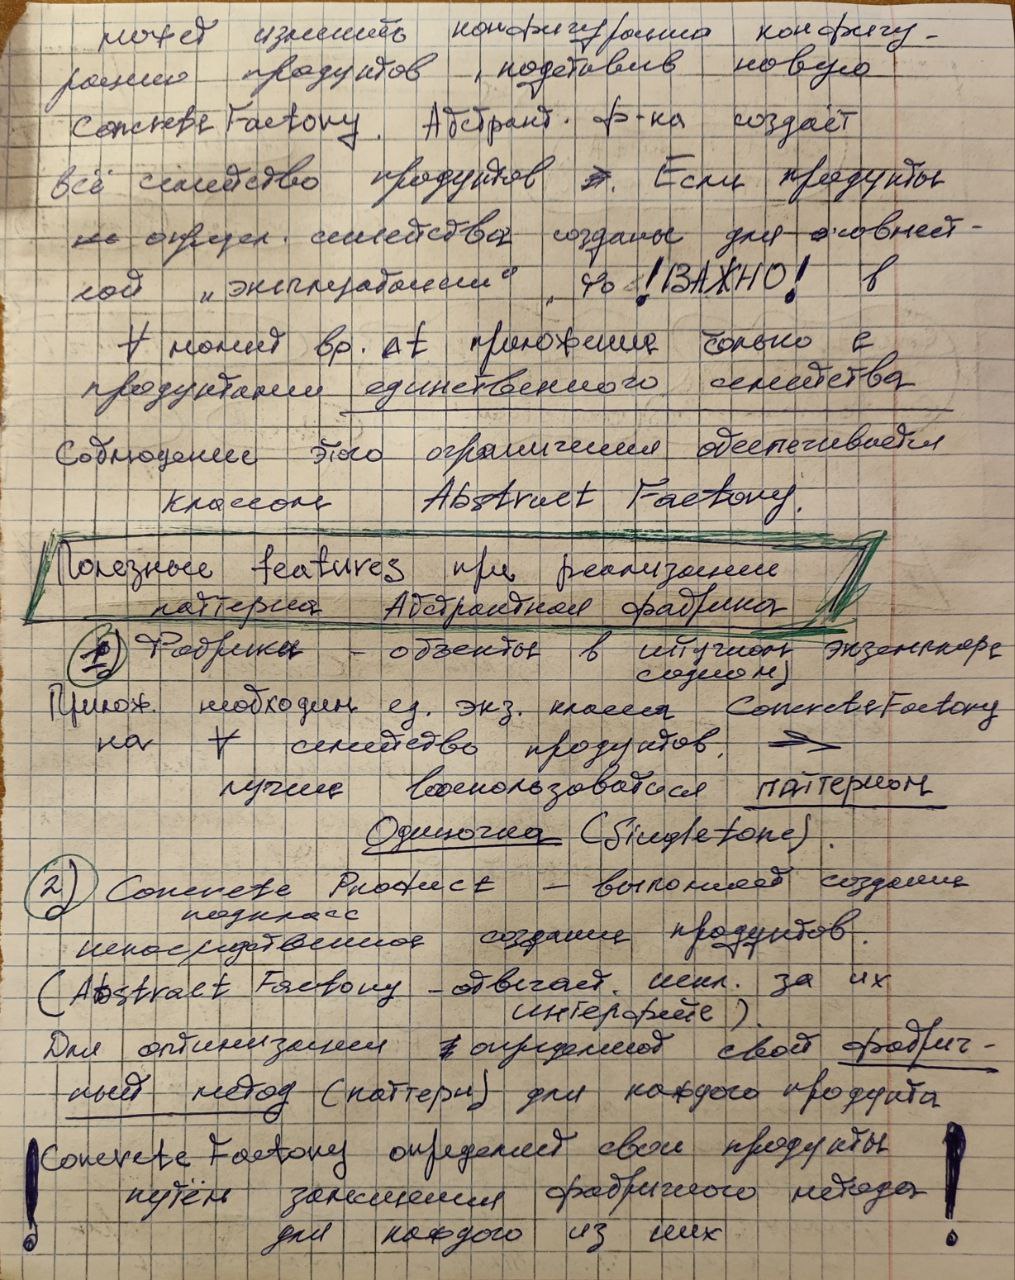 может изменить конфигурацию конфигу-
рацию продуктов, подставив новую
ConcreteFactory. Абстракт. ф-ка создаёт
всё семейство продуктов ⇒. Если продукты
опредл. семейства созданы для совмест-
ной „эксплуатации“, то !ВАЖНО! в
∀ момент вр. ∧t приложение только с
продуктами единственного семейства
Соблюдение этого ограничения обеспечивается
классом Abstract Factory.
Полезные features при реализации
паттерна Абстрактная фабрика
1) Фабрики – объекты в штучном экземпляре
(одном)
Прилож. необходим ед. экз. класса ConcreteFactory
на ∀ семейство продуктов. ⇒
лучше воспользоваться паттерном
Одиночка (Singletone).
2) Concrete Product – выполняет создание
подкласс
непосредственное создание продуктов.
(Abstract Factory – отвечает искл. за их
интерфейс).
Для оптимизации определяют свой фабрич-
ный метод (паттерн) для каждого продукта
! Concrete Factory определяет свои продукты !
путём замещения фабричного метода
для каждого из них